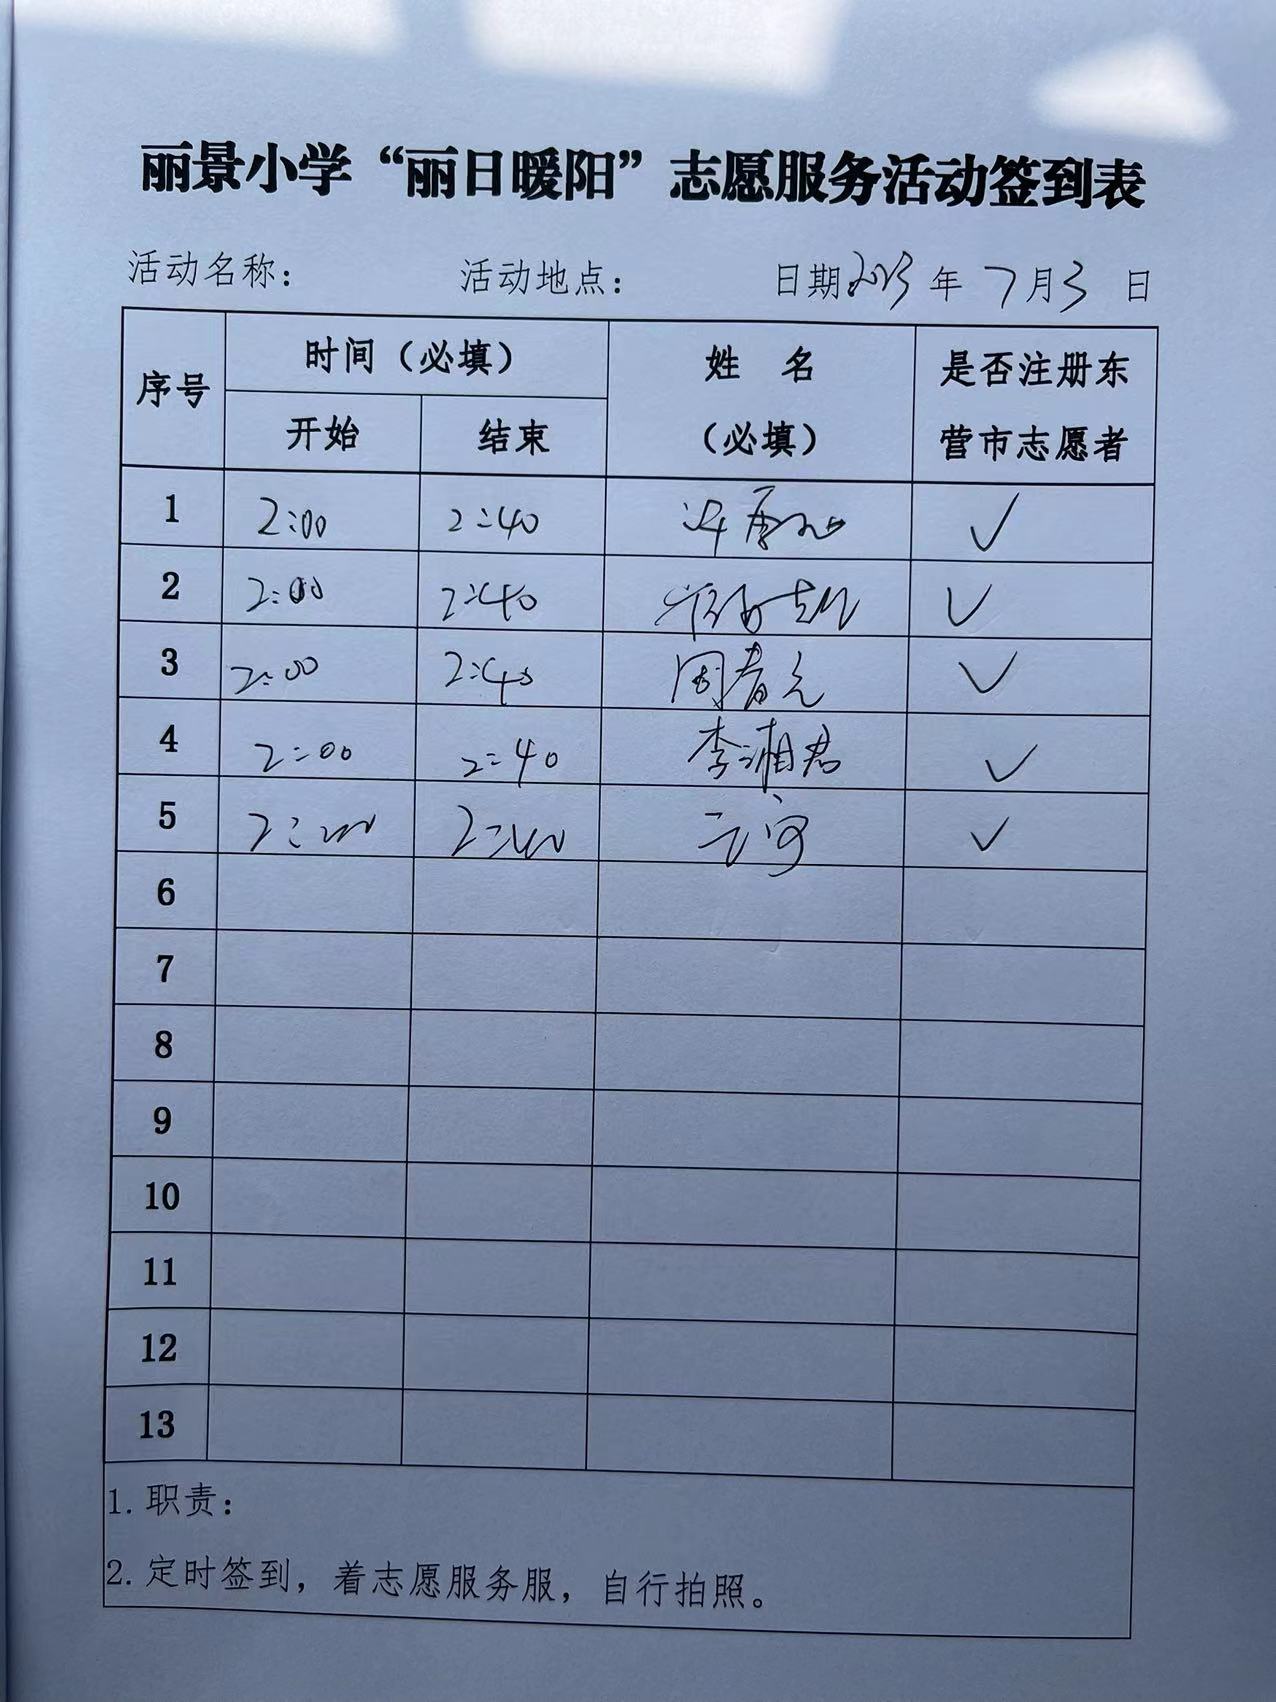 丽景小学“丽日暖阳”志愿服务活动签到表
活动名称： 活动地点： 日期2023年7月3日
序号 时间（必填） 姓 名（必填） 是否注册东营市志愿者
开始 结束
1 2:00 2:40 ✓
2 2:00 2:40 ✓
3 2:00 2:40 ✓
4 2:00 2:40 李湘君 ✓
5 2:00 2:40 ✓
6
7
8
9
10
11
12
13
1. 职责：
2. 定时签到，着志愿服务服，自行拍照。